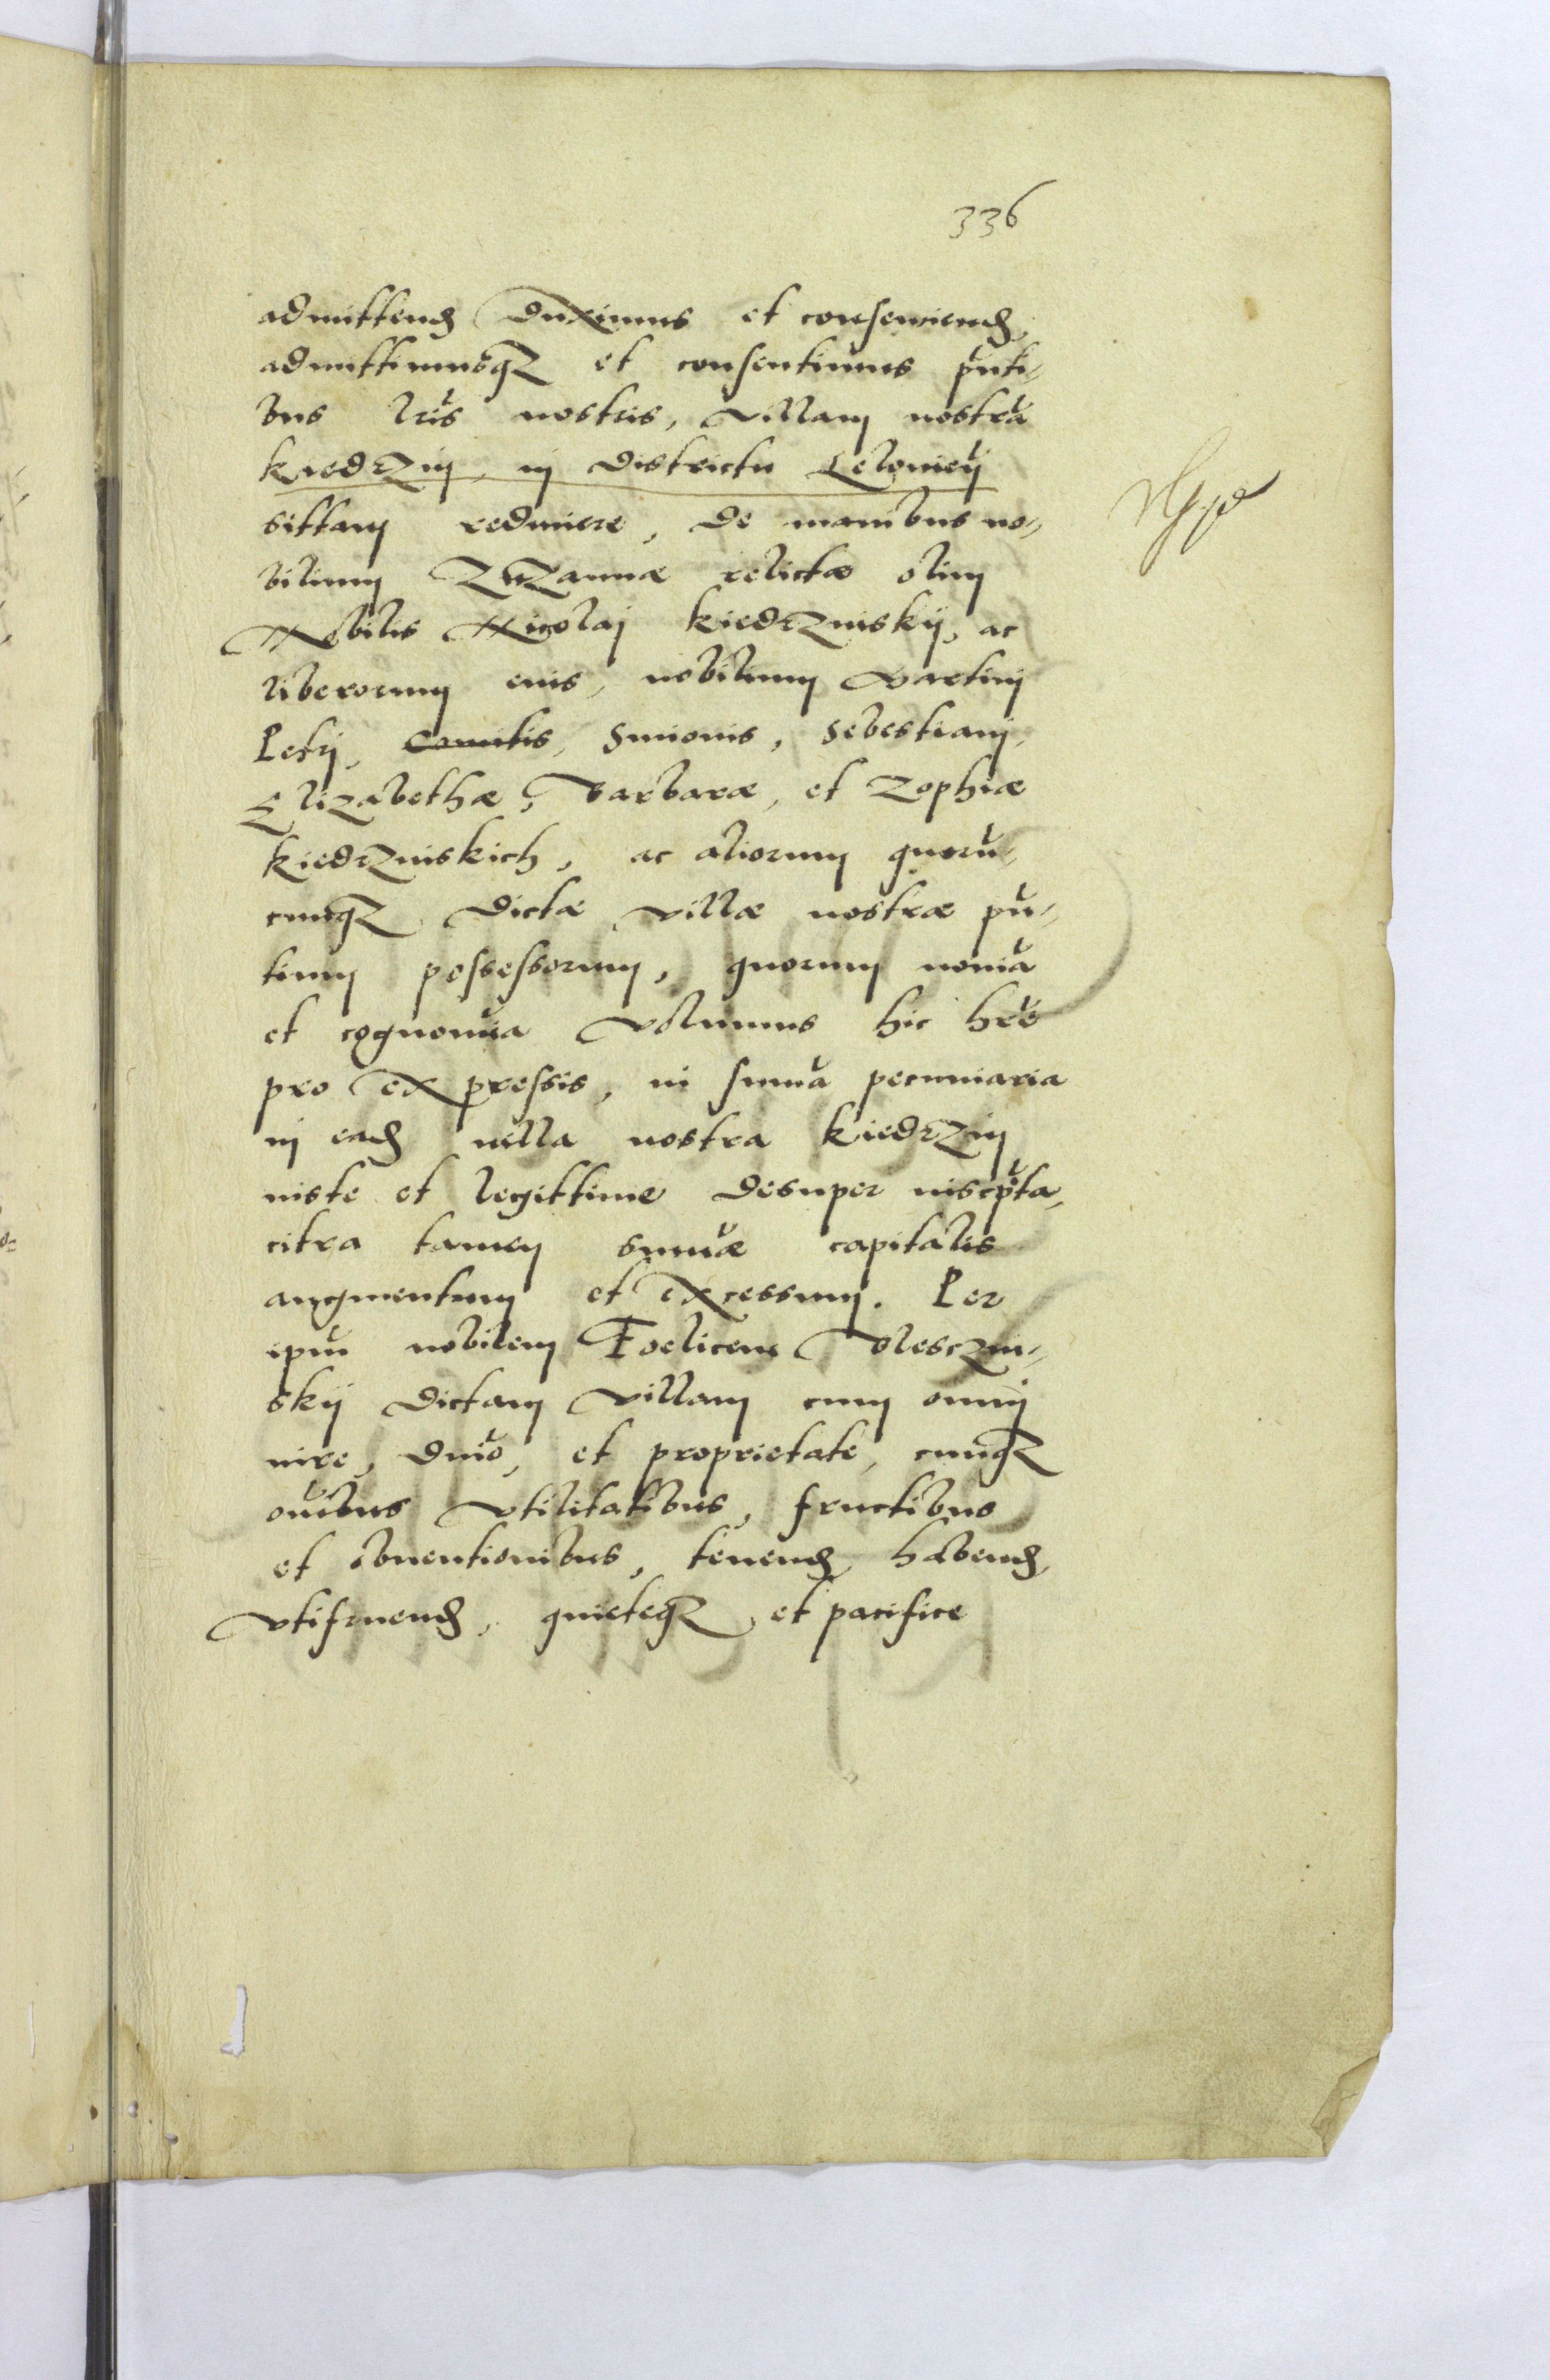 336
admittend duximus et consenciend,
admittimusq et consentimus pñti-
bus lris nostris, Villam nostrã
Kiedrzin, in districtu Lelovieñ
sittam redimere, de manibus no-
bilium Zuzannæ relictæ olim
Nobilis Nicolaj Kiedrzinskij, ac
liberorum eius, nobilium Martini
Petrj, Comitis, Simonis, Sebestiani,
Elizabethæ, Barbaræ, et Zophiæ
Kiedrzinskich, ac aliorum quorũ-
cumq dictæ villæ nostræ pñ-
tium possessorum, quorum noĩa
et cognoĩa Volumus hic hrẽ
pro expressis, in suma pecuniaria
in ead villa nostra Kiedrzin
iuste et legittime desuper inscpta,
citra tamen sumæ capitalis
augmentum et excessum. Per
ipm nobilem Foelicem Olesczin-
skij dictam Villam cum omnj
iure, dnio, et proprietate, cumq
oĩbus Vtilitatibus, fructibus
et obuentionibus, tenend, habend,
Vtifruend, quieteq et pacifice